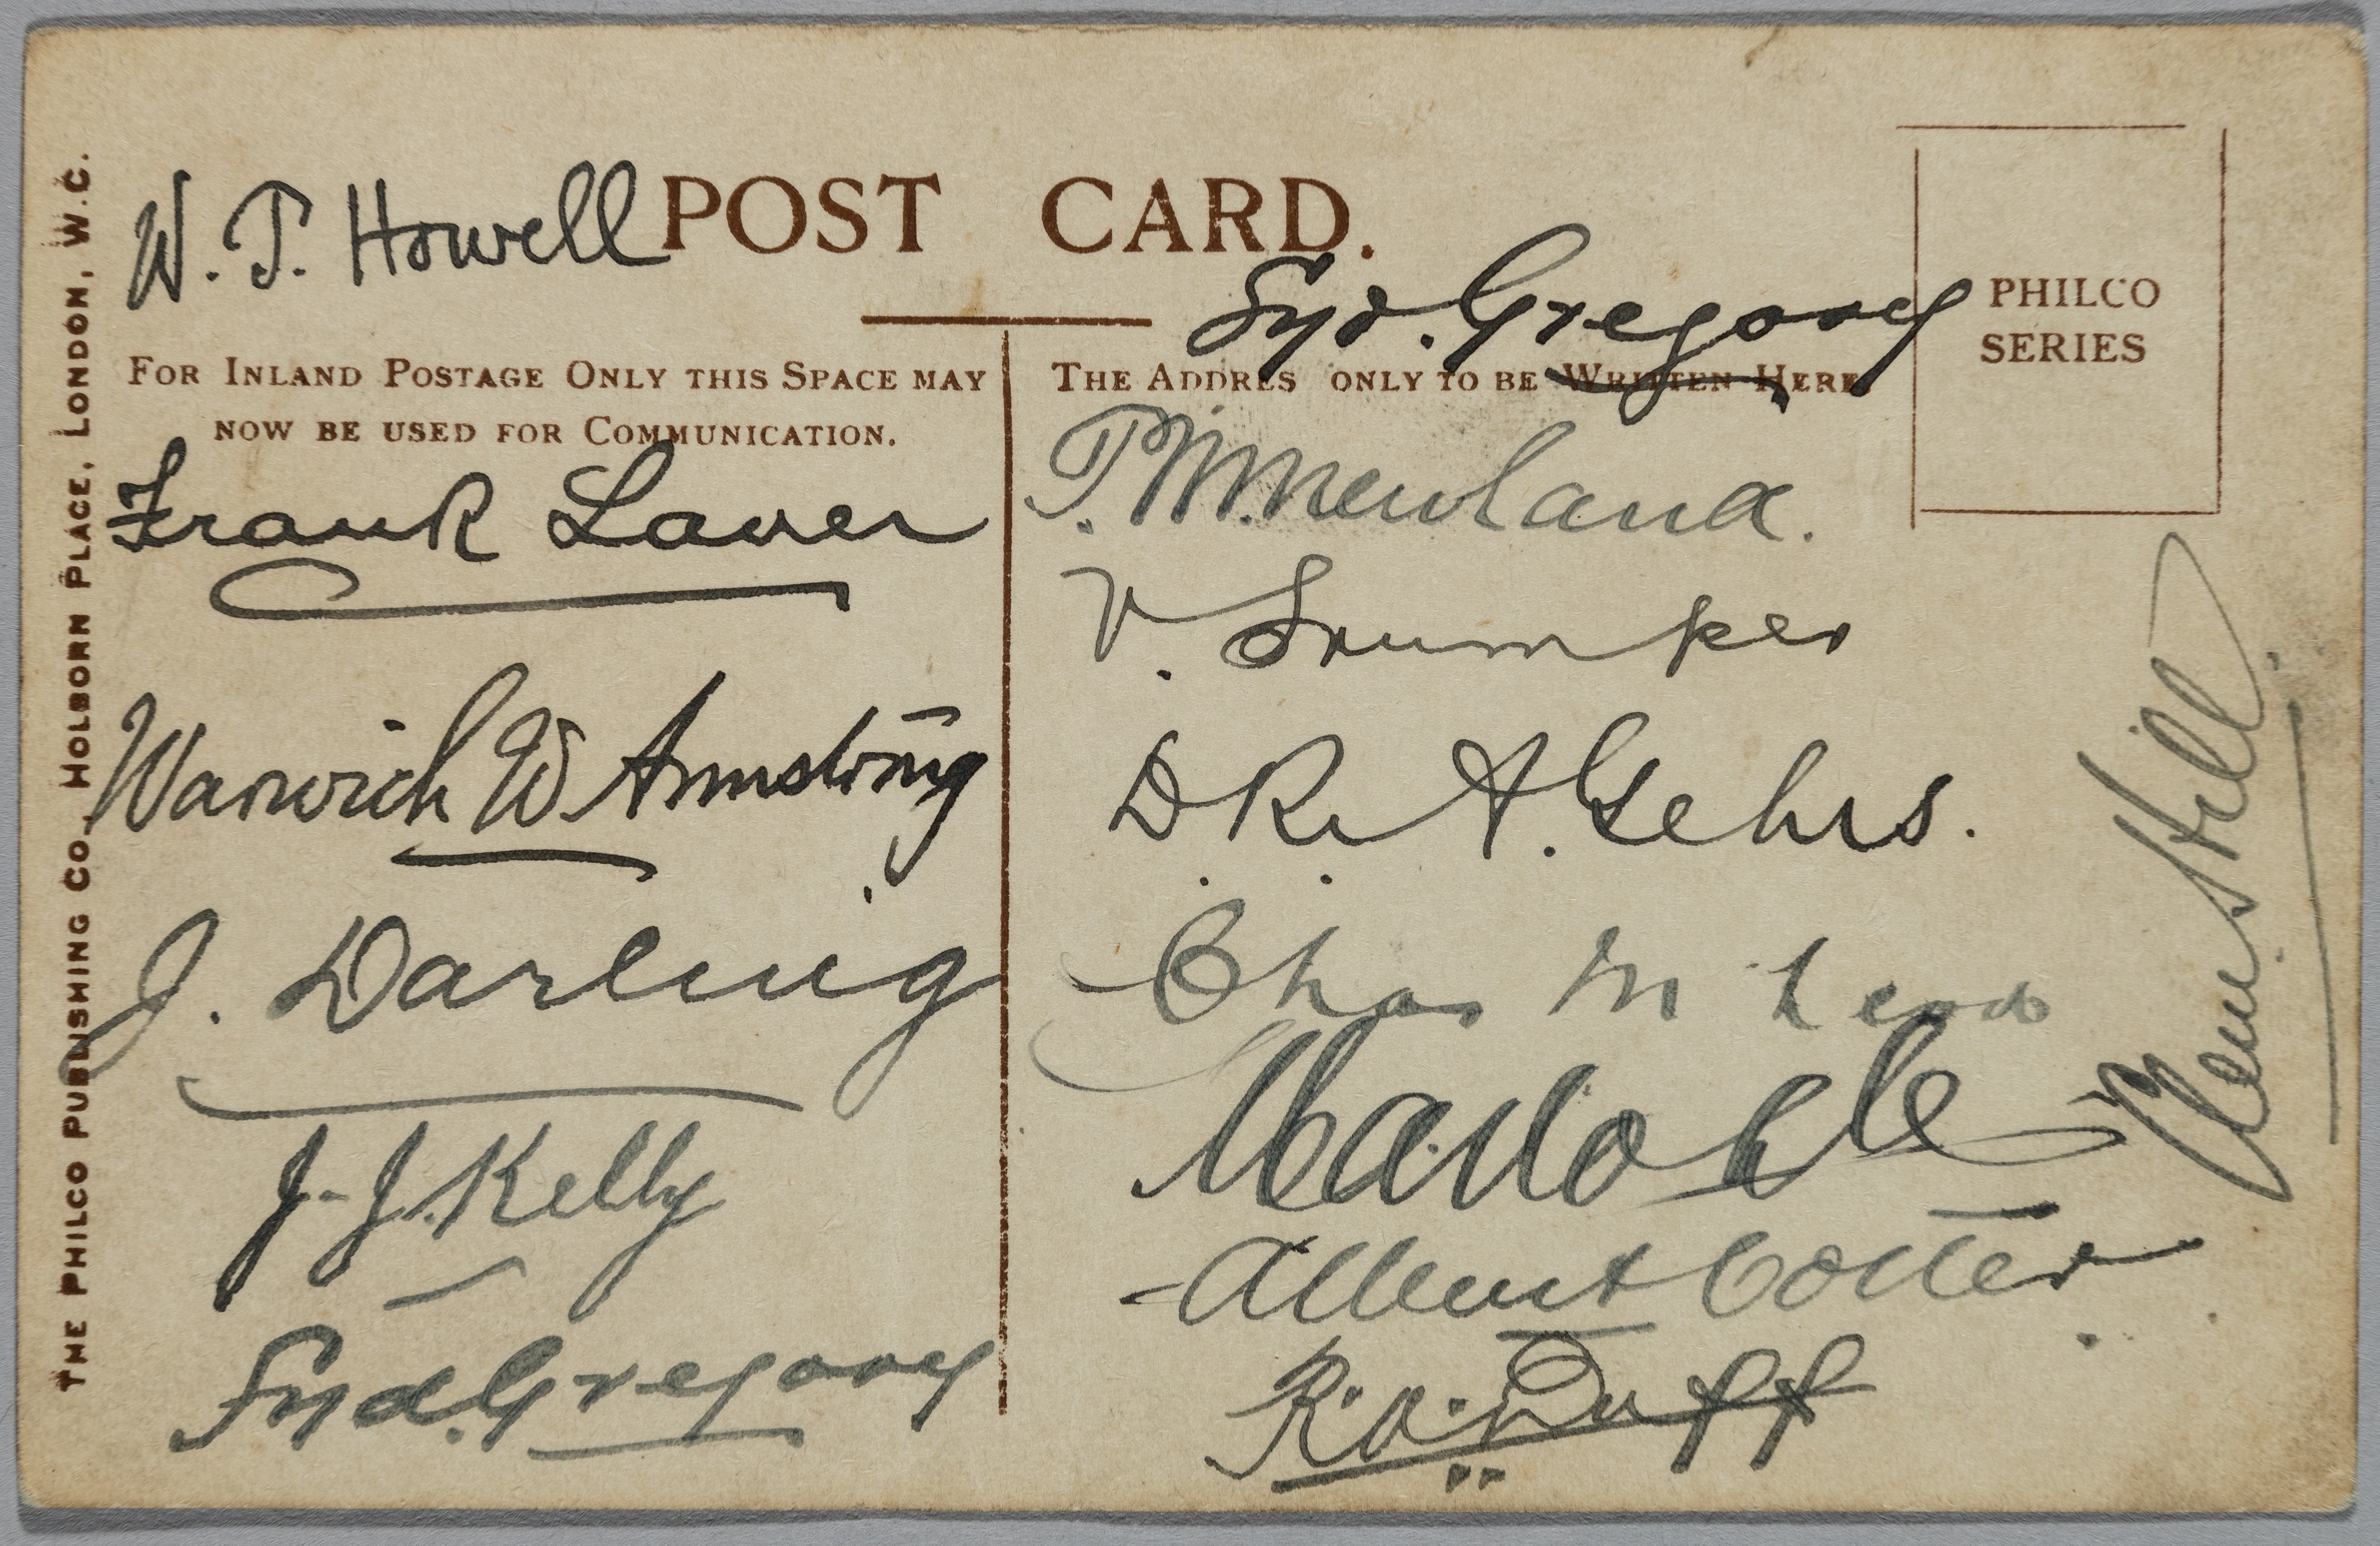 POST CARD.
PHILCO
SERIES
FOR INLAND POSTAGE ONLY THIS SPACE MAY
NOW BE USED FOR COMMUNICATION.
THE ADDRES ONLY TO BE WRITTEN HERE.
THE PHILCO PUBLISHING CO., HOLBORN PLACE, LONDON, W.C.
W. P. Howell
Frank Laver
Warwick W Armstrong
J. Darling
J. J. Kelly
Syd. Gregory
Syd. Gregory
P. M. Newland.
V. Trumper
D R A. Gehrs.
Chas McLeod
Albert Cotter
R. A. Duff
Clem Hill.